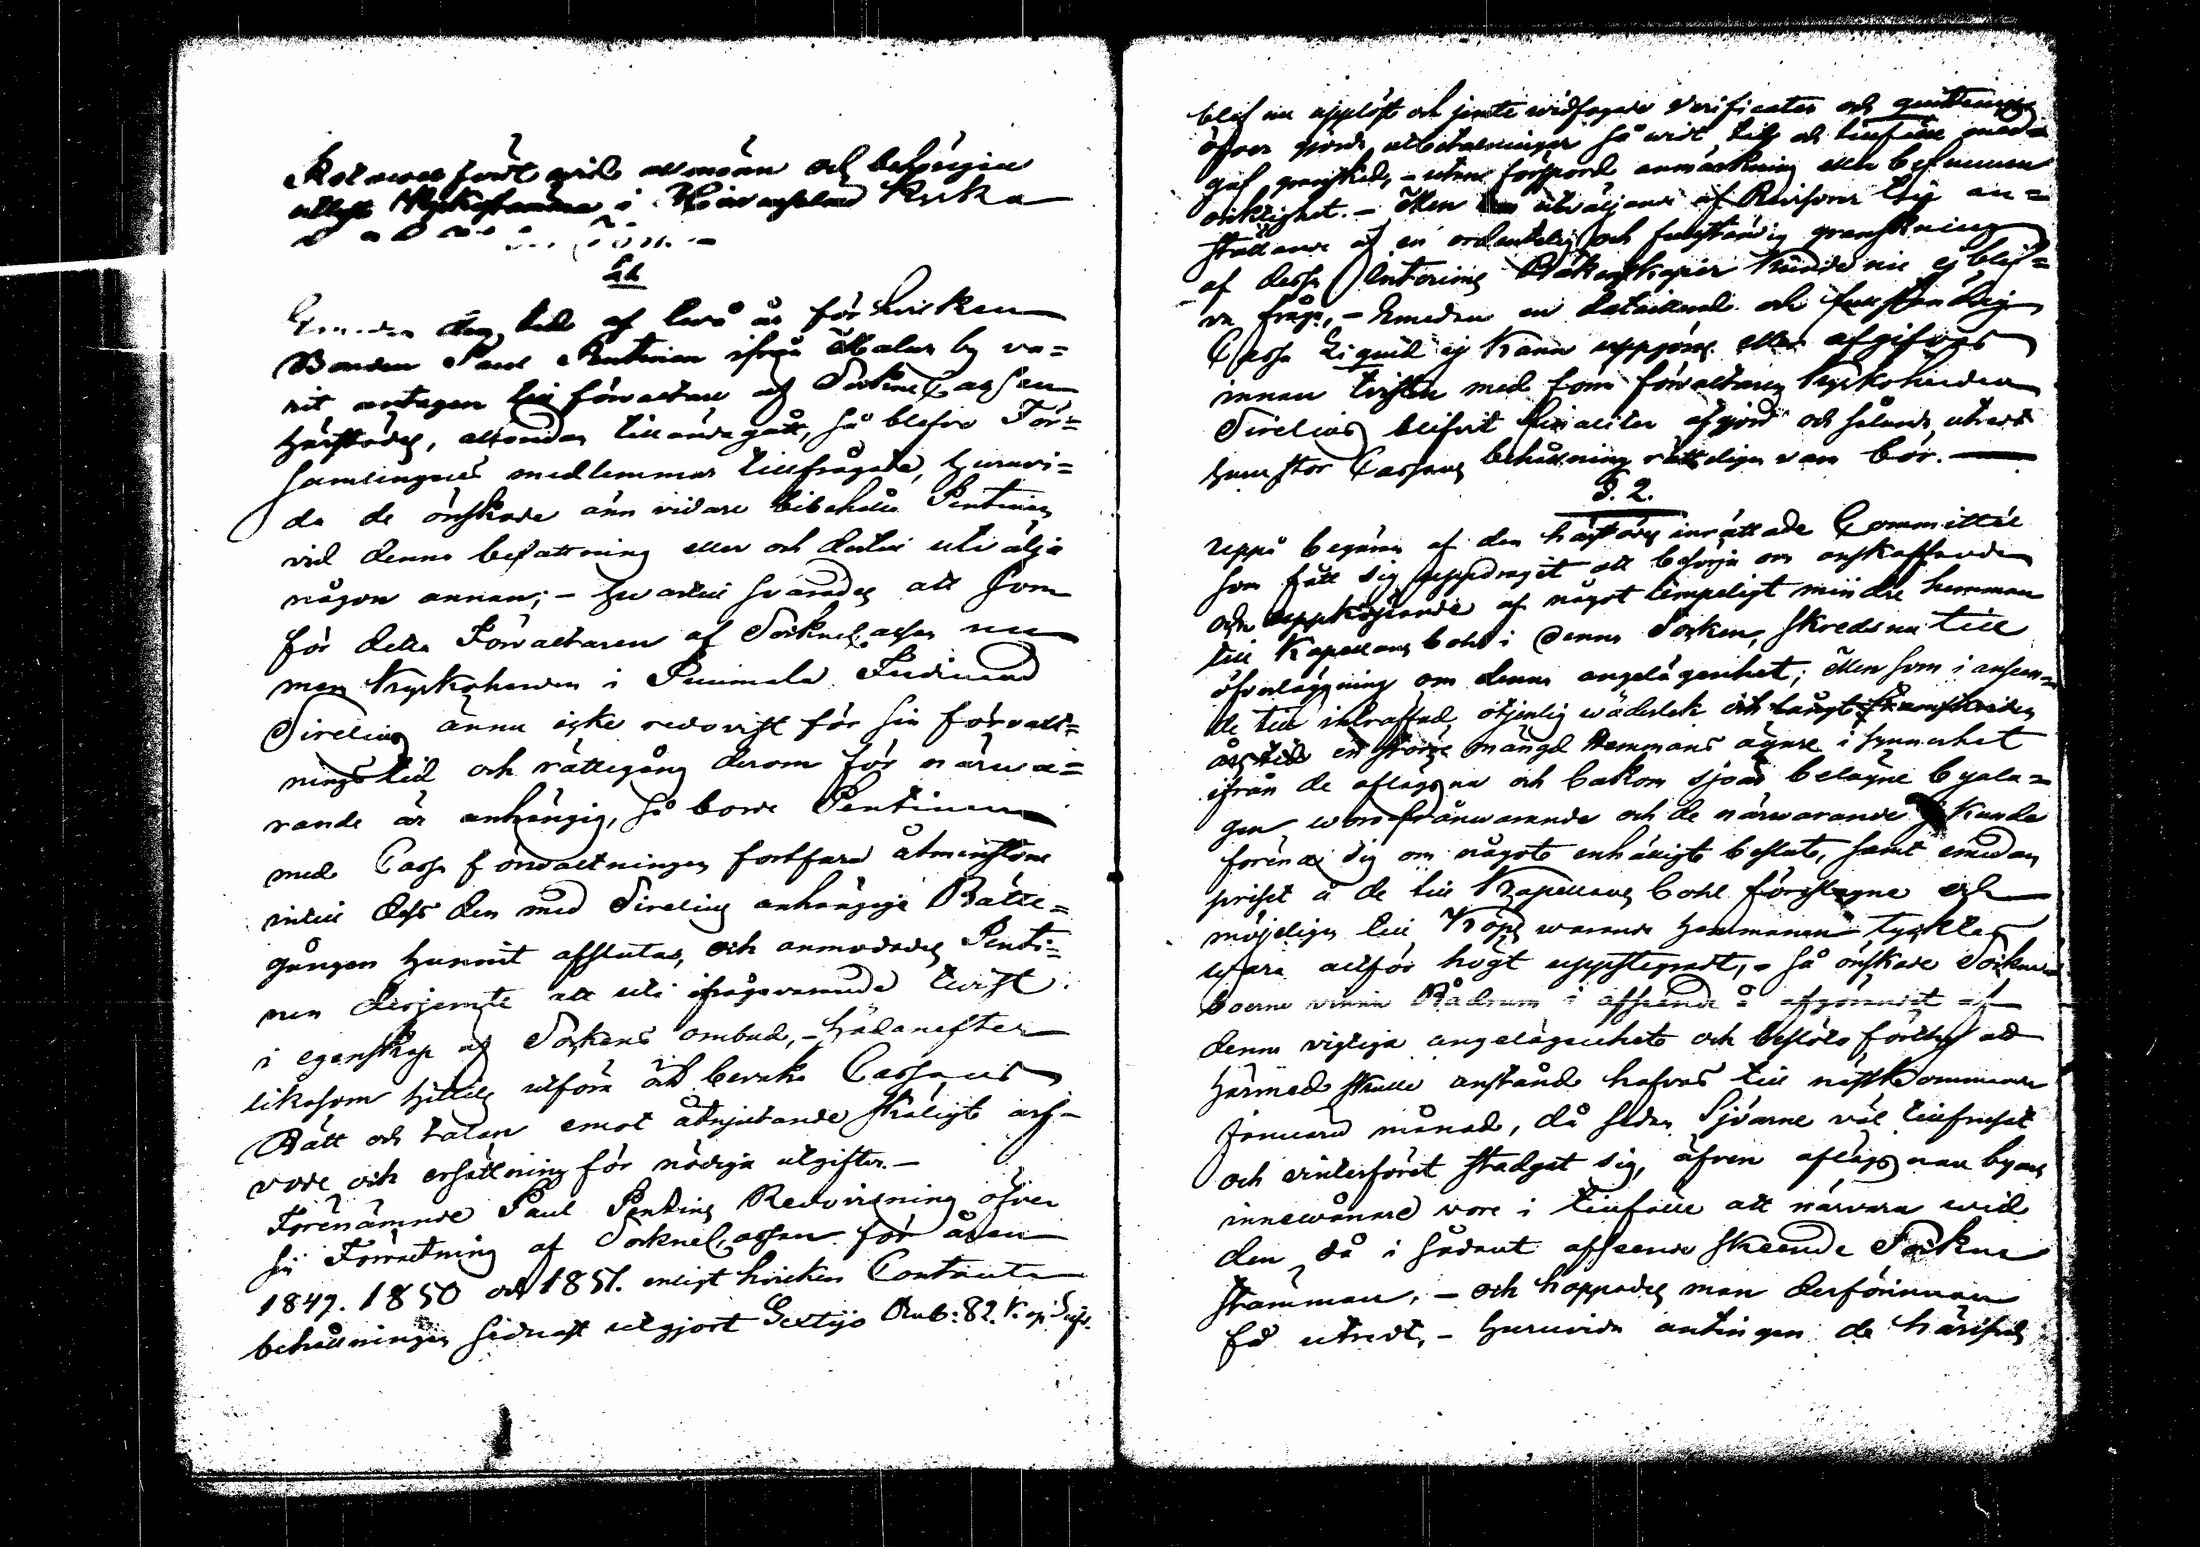 fört wid allmän och behörigen
utlyst Kyrkostämma i Kyrka
§ 1.
den tid af två år för hvilken
Bonden Paul Pentinen ifrån by va=
rit antagen till förvaltare af SockneCassan
härstädes, allaredan tilländagått, så blefvo För=
samlingens medlemmar tillfrågade, huruvi=
da de önskade änn vidare bibehålla Pentinen
vid denna befattning eller och dertill utvälja
någon annan; - hvartill svarades att som
för detta Förvaltaren af Sockne Cassan nu
mera Kyrkoherden i Sumiala Ferdinand
Sirelius ännu icke redovist för sin förvalt=
ningstid och rättegång derom för närva=
rande är anhängig, så borde Pentinen
med Cassa förvaltningen fortfara åtminstone
intill dess den med Sirelius anhängiga Rätte=
gången hunnit afslutas, och anmodades Penti=
nen derjemte att uti ifrågavarande tvist
i egenskap af Sockens ombud, - hädanefter
likasom hittills utföra och bevaka Cassans
Rätt och talan emot åtnjutande skäligt arf-
vode och ersättning för nödiga utgifter. -
Förenämnde Paul Pentinens Redovisning öfver
sin Förvaltning af Sockne Cassan för åren
1849. 1850 och 1851. enligt hvilken Contanta
behållningen sidnast utgjort Sextijo Rub: 82. Kop: Silfv.
blef nu uppläst och jemte vidfogade Verificater och quittenser
öfver gjorda utbetalningar så vidt tid och tillfälle med=
gaf granskad, - utan förspord anmärkning eller befunnen
oriktighet. - Men utväljande af Revisorer till an=
ställande af en ordentelig och fullständig granskning
af dessa Interims Räkenskaper kunde nu ej blif=
va fråga, - emedan en detaillerad och fullständig
Cassa Liquid ej kann uppgöras eller afgifvas
innan tvisten med förra förvaltaren Kyrkoherden
Sirelius blifvit finaliter afgjord och sålunda utredt
huru stor Cassans behållning rätteligen vara bör. -
§. 2.
Uppå begäran af den härstädes inrättade Committée
som fått sig uppdraget att besörja om anskaffande
och uppköpande af något lämpeligt mindre hemman
till Kapellans bohl i denna Socken, skreds nu till
öfverläggning om denna angelägenhet; Men som i anseen=
de till inträffad otjenlig wäderlek och långt framskriden
årstid en större mängd Hemmans ägare i synnerhet
ifrån de aflägsna och bakom sjöar belägne byala=
gen woro frånwarande och de närwarande ej kunde
förena sig om något enhälligt beslut, samt emedan
priset å de till Kapellans bohl föreslagne och
möjeligen till Köps warande Hemmanen tycktes
wara allför högt uppstegradt, - så önskade Sockne
boerne vinna Rådrum i afseende å afgörandet af
denna vigtiga angelägenhet och beslöts fördenskull att
härmed skulle anstånd hafvas till nästkommande
Januarii månad, då sedan Sjöarne väl tillfrusit
och vinterföret stadgat sig, äfven aflägsnare byars
innewånare vore i tillfälle att närvara wid
den då i sådant afseende skeende Sockne
stämman, - och hoppades man derförinnan
få utredt, - huruvida antingen de härifrån